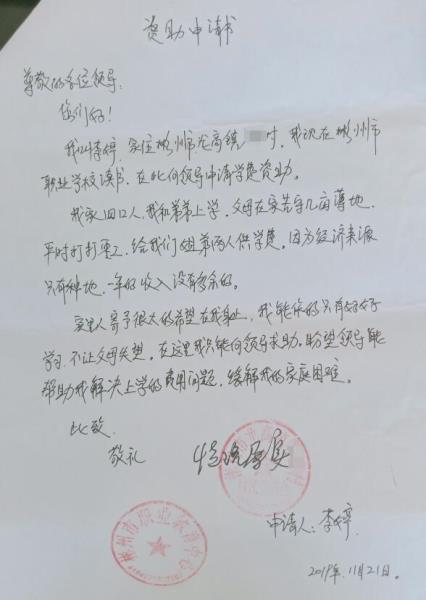 资助申请书
尊敬的各位领导:
您们好!
我叫李婷,家住彬州市龙高镇 村,我现在彬州市
职业学校读书,在此向领导申请学费资助。
我家四口人,我和弟弟上学,父母在家苦守几亩薄地,
平时打打零工,给我们姐弟两人供学费。因为经济来源
只有种地,一年的收入没有多余的。
家里人寄予很大的希望在我身上,我能做的只有好好
学习,不让父母失望。在这里我只能向领导求助。盼望领导能
帮助我解决上学的费用问题,缓解我的家庭困难。
此致
敬礼
情况属实
彬州市职业教育中心
申请人:李婷
2019年11月21日.